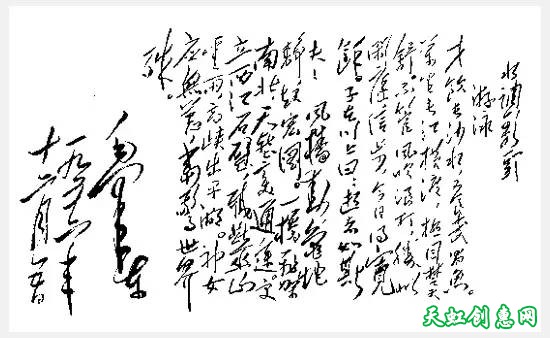 水调歌头
游泳
才饮长沙水,又食武昌鱼。
万里长江横渡,极目楚天
舒。不管风吹浪打,胜似
闲庭信步,今日得宽
馀。子在川上曰:逝者如斯
夫!风樯动,龟蛇
静,起宏图。一桥飞架
南北,天堑变通途。更
立西江石壁,截断巫山
云雨,高峡出平湖。神女
应无恙,当惊世界
殊。
毛泽东
一九五六年
十二月五日
天虹创意网